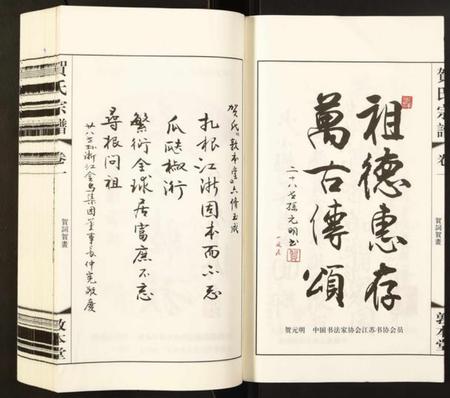 賀氏宗譜
卷一
祖德惠存
萬古傳頌
二十八世孫元明書
贺元明 中国书法家协会江苏书协会员
敦本堂
賀氏敦本堂六修玉成
扎根江浙固本而不忘
瓜瓞椒衍
繁衍全球居富庶不忘
尋根問祖
廿八世孙浙江金鸟集团董事長仲寬敬慶
賀氏宗譜
卷一
賀詞賀畫
敦本堂